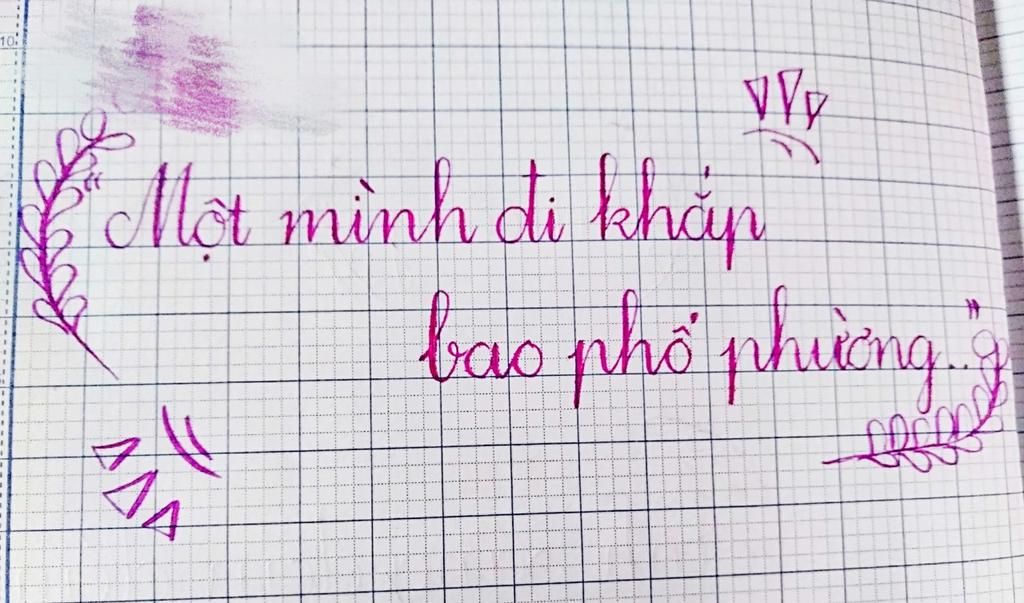 10
"Một mình đi khắp
bao phố phường..."